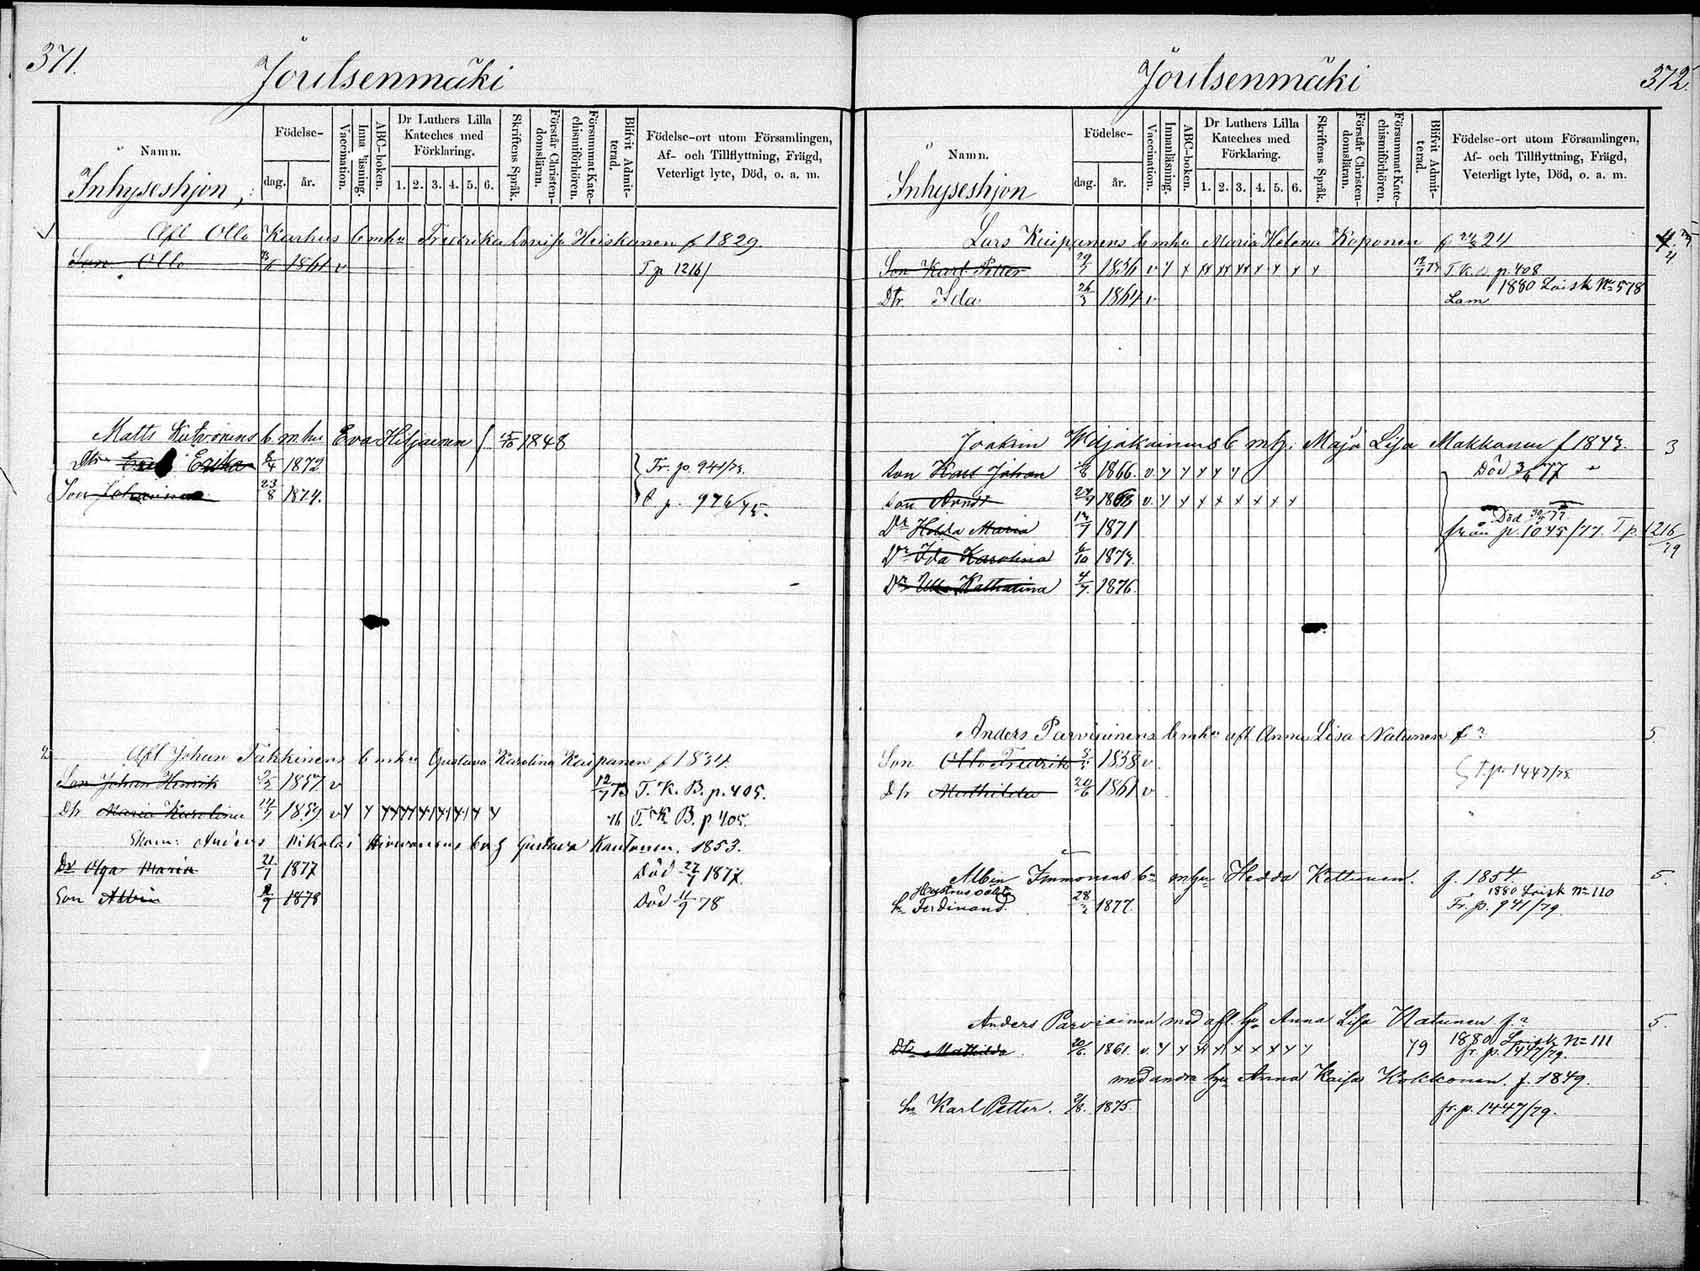 371.
Joulsenmäki
Namn.
Inhyseshjon,
Födelse-
dag.
år.
Vaccination.
Innanläsning.
ABC-boken.
Dr Luthers Lilla
Kateches med
Förklaring.
1. 2. 3. 4. 5. 6.
Skriftens Språk.
Förstår Christen-
domsläran.
Försummat Kate-
chismiförhören.
Blifvit Admit-
terad.
Födelse-ort utom Församlingen,
Af- och Tillflyttning, Frägd,
Veterligt lyte, Död, o. a. m.
Afl Olle Karhus b mhu Fredrika Lovisa Heiskanen f 1829.
Son Olle 1861 v T p 1216/
Matts b. m. hu Eva Hiljainen f. 1848
Dtr Erika 4 1872 Fr. p. 941/73.
Son 23/8 1874. T p. 976/75.
2
Afl Johan Takkinens b mhu Gustava Karolina Kaipanen f 1834.
Son Johan Henrik 1857 v 12/7 73 T. K. B. p. 405.
Dtr Maria Karolina 1859 v 76 T. K. B. p 405.
Nikolai Hirvonens Gustava Kautonen. 1853.
Dr Olga Maria 21/7 1877 Död 27/7 1877.
Son Albin 1878 Död 11/9 78
372.
Joulsenmäki
Namn.
Inhyseshjon
Födelse-
dag.
år.
Vaccination.
Innanläsning.
ABC-boken.
Dr Luthers Lilla
Kateches med
Förklaring.
1. 2. 3. 4. 5. 6.
Skriftens Språk.
Förstår Christen-
domsläran.
Försummat Kate-
chismiförhören.
Blifvit Admit-
terad.
Födelse-ort utom Församlingen,
Af- och Tillflyttning, Frägd,
Veterligt lyte, Död, o. a. m.
Lars Kaipanens b mhu Maria Helena Koponen f 24
Son Karl Petter 1856 v. p. 408
Dtr Ida 26/3 1864 v 1880 Laisk No 578
Lam
Joakim b mh. Maja Lisa Makkonen f 1843. 3
Son Karl Johan 1866 v. Död 77
Son v.
Dr Hilda Maria 1871 Död 77
från p. 1045/77. T p. 1216/79
Dr Ida Karolina 6/10 1873.
Dr Ulla Katharina 4/7. 1876.
Anders Parviainens b mhu afl Anna Lisa Natunen f? 5.
Son Olle Fredrik 1858 v. T. p. 1447/78
Dtr Mathilda 20/6 1861 v
Albin Immonens mhu Hedda Kettunen. f. 1854 5.
1880 Laisk No 110
Ferdinand. 28/2 1877. Fr. p. 941/79.
Anders Parviainen med afl. hu Anna Lisa Natunen f? 5.
Dtr Mathilda 20/6. 1861. v. 79 1880 Laisk No 111
fr. p. 1447/79.
med andra hu Anna Kaisa Kokkonen. f. 1849.
Sn Karl Petter. 1875 fr. p. 1447/79.